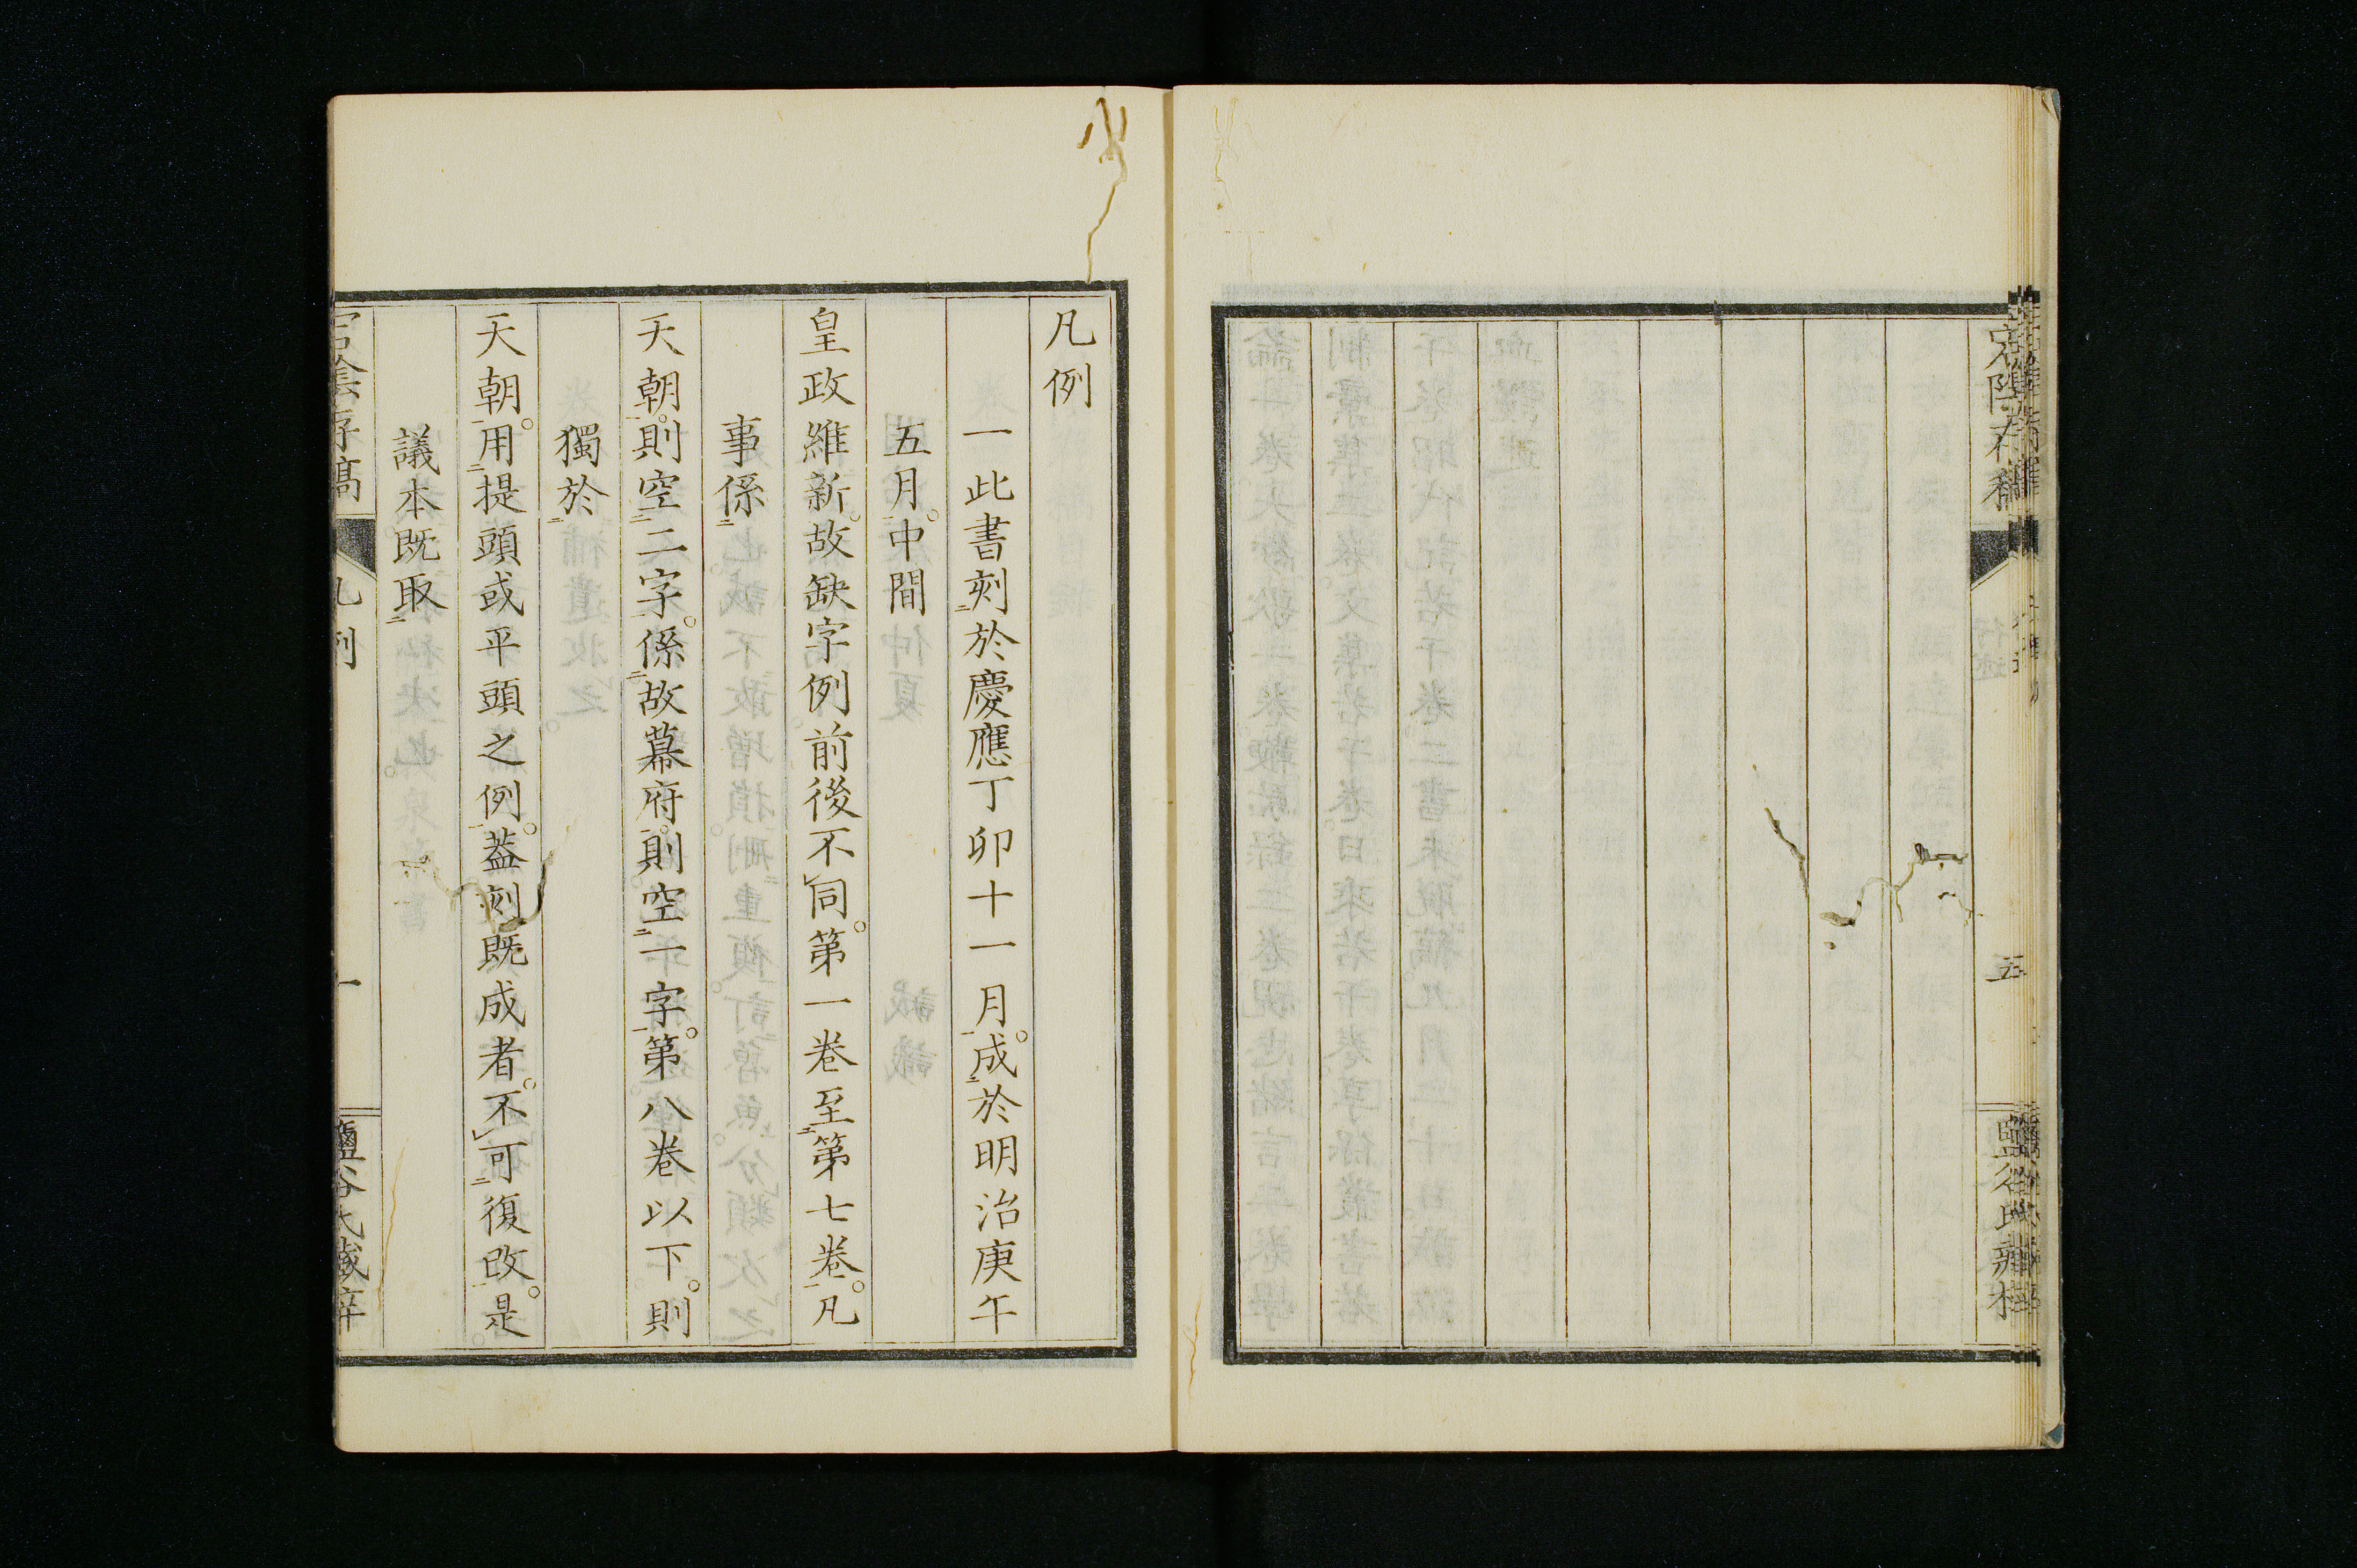 五
凡例
一此書刻於慶應丁卯十一月。成於明治庚午
五月。中間
皇政維新。故缺字例前後不同。第一卷至第七卷。凡
事係
天朝。則空二字。係故幕府。則空一字。第八卷以下。則
獨於
天朝。用提頭或平頭之例。蓋刻既成者。不可復改。是
議本既取